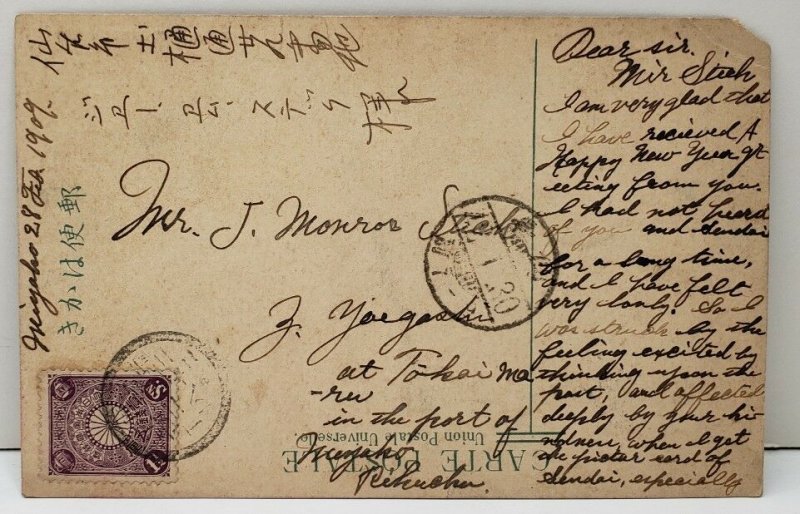 仙台市土樋通
ジエー、エム、ステッ
Miyako 28 Feb. 1909.
郵便はかき
Mr. J. Monroe Stick
Z. Yaegashi
at Tōkai Ma
-ru
in the port of
Miyako
Rikuchu.
CARTE POSTALE
Union Postale Universelle.
Dear sir.
Mir Stick
I am very glad that
I have recieved A
Happy New Year gr
eeting from you.
I had not heard
of you and Sendai
for a long time,
and I have felt
very lonly. So I
was struck by the
feeling excited by
thinking upon the
past, and affected
deeply by your ki-
ndness, when I get
the pictur card of
Sendai, especially